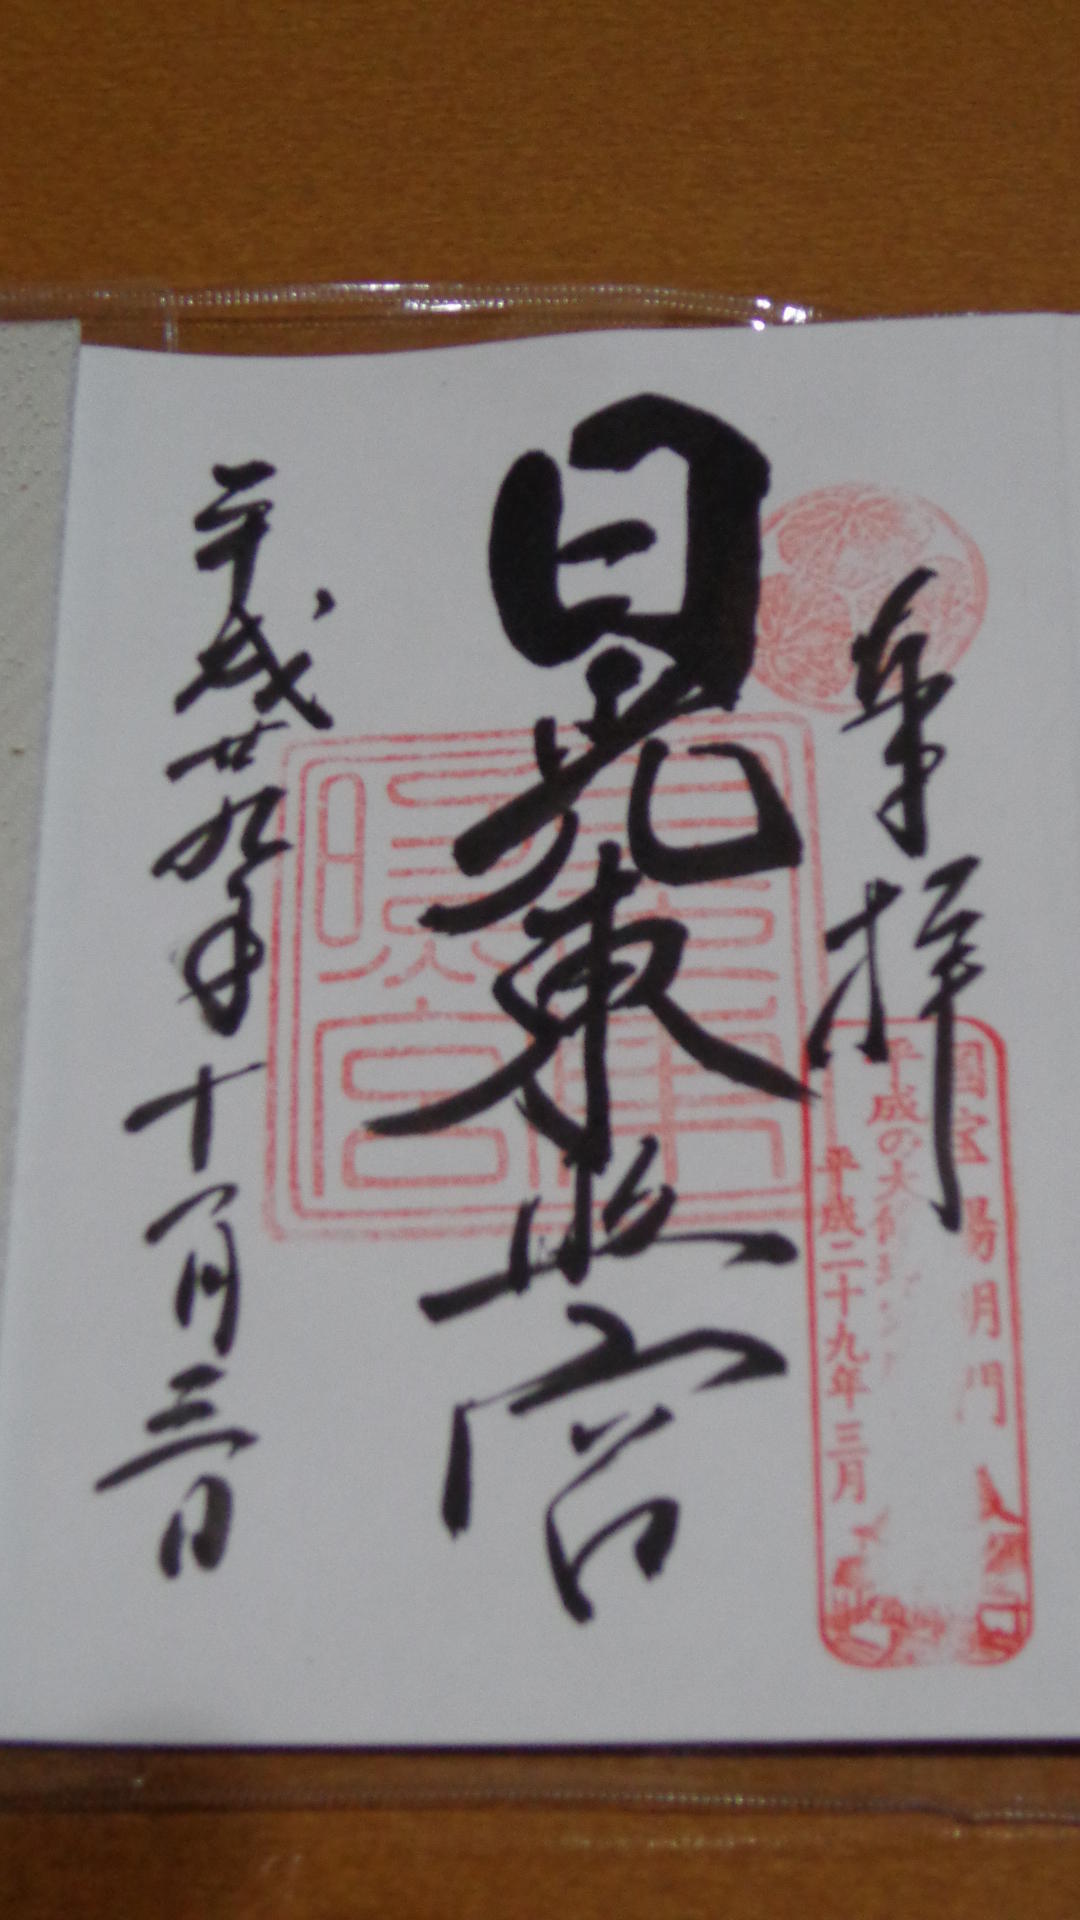 奉拝
国宝 陽明門
平成の大修理
平成二十九年三月
日光東照宮
東照宮
平成廿九年十一月三日